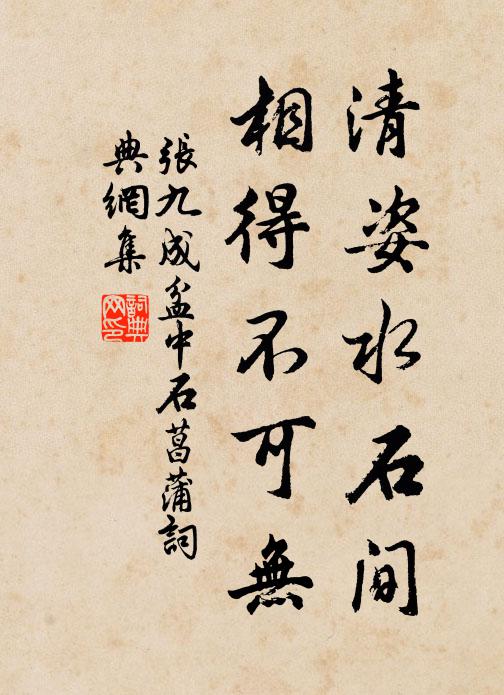 清姿水石间
相得不可無
張九成盆中石菖蒲詞
典網集
詞典网印